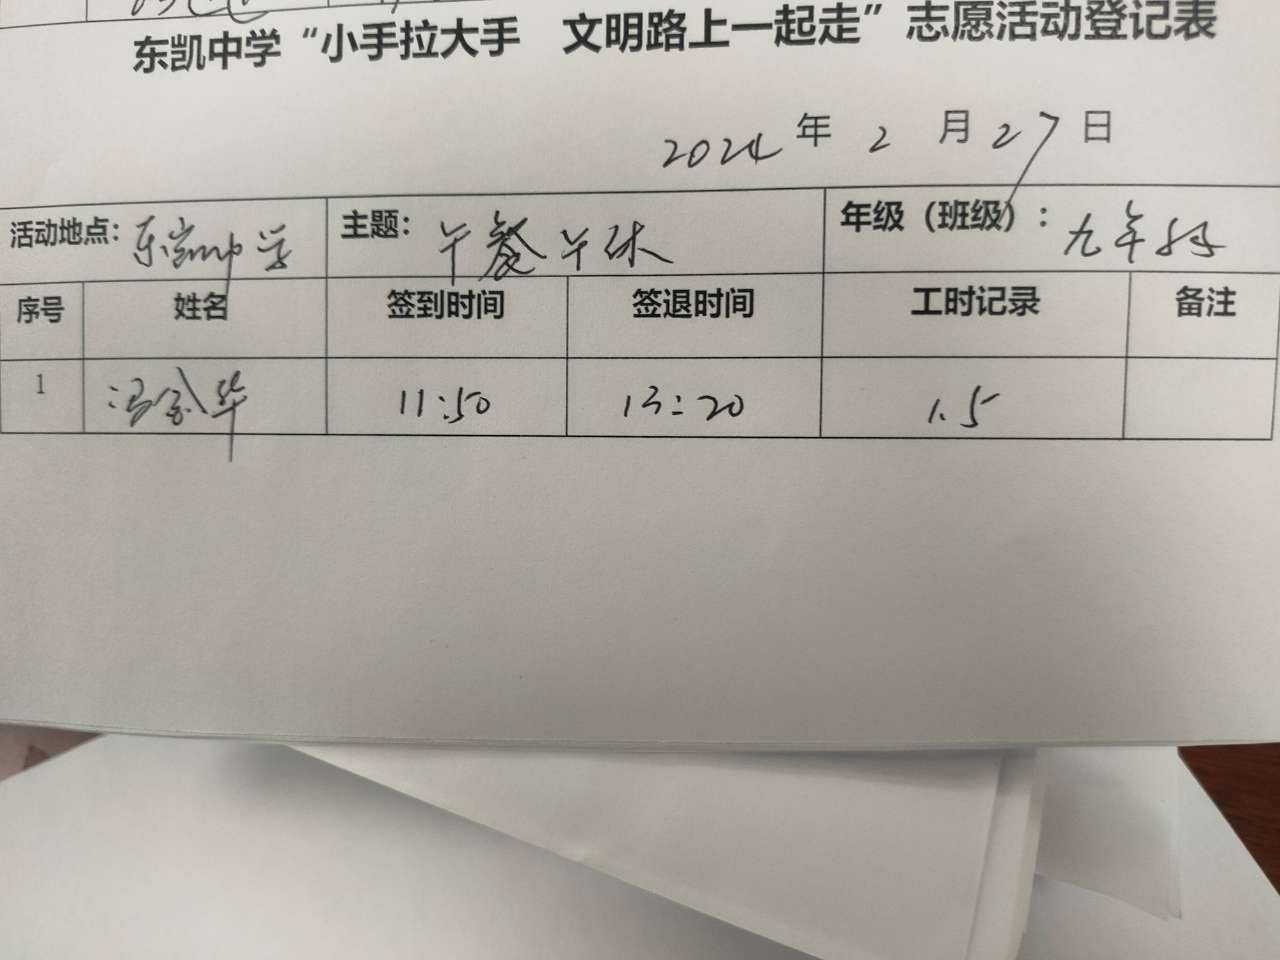 东凯中学“小手拉大手 文明路上一起走”志愿活动登记表
2024 年 2 月 27 日
活动地点：东凯中学 主题：午餐午休 年级（班级）：九年级
序号 姓名 签到时间 签退时间 工时记录 备注
1 冯金华 11:50 13:20 1.5